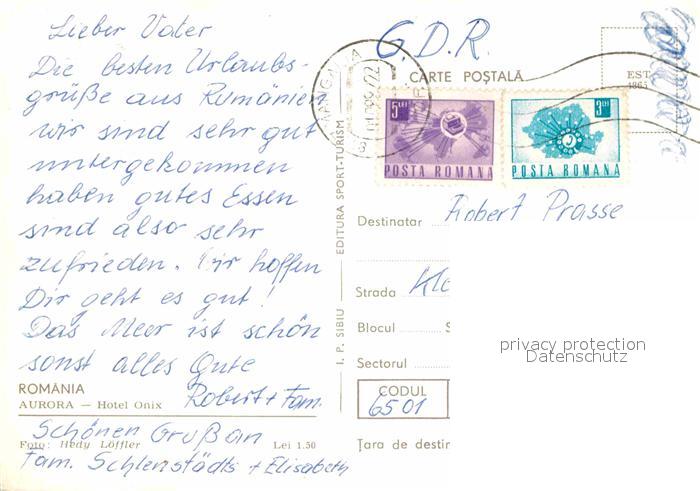 Lieber Vater
Die besten Urlaubs-
grüße aus Rumänien
wir sind sehr gut
untergekommen
haben gutes Essen
sind also sehr
zufrieden. Wir hoffen
Dir geht es gut!
Das Meer ist schön
sonst alles Gute
Robert + Fam.
ROMÂNIA
AURORA — Hotel Onix
Schönen Gruß an
Foto: Hedy Löffler
Lei 1.50
Fam. Schlenstädts + Elisabeth
I. P. SIBIU | EDITURA SPORT-TURISM
G.D.R.
CARTE POȘTALĂ
MANGALIA
5 LEI
POSTA ROMANA
3 LEI
POSTA ROMANA
Destinatar Robert Prasse
Strada Kle
Blocul S
privacy protection
Datenschutz
Sectorul
CODUL
6501
Țara de destin